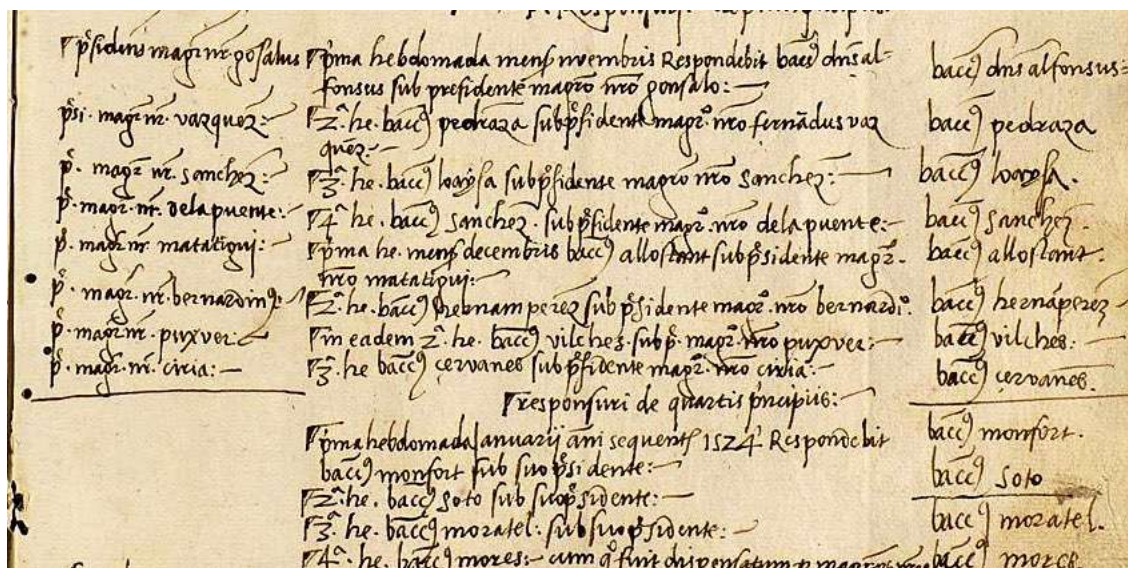 Responsuri de principiis
p̃sidens magr̃ nr̃ gosalus
p̃si. magr̃ nr̃. vazquez:~
p̃. magr̃ nr̃. sanchez:
p̃. magr̃. nr̃. delapuente:-
p̃. magr̃ nr̃. matatigui:-
p̃. magr̃. nr̃. bernardinꝯ:-
p̃. magr̃ nr̃. puxver:-
p̃. magr̃. nr̃. ciria:-
p̃ma hebdomada mensꝭ novembris Respondebit baccꝯ dñs al-
fonsus sub presidente magrõ nrõ gonsalo:-
2ª. he. baccꝯ pedraza sub p̃sidente magrº. nrõ fernãdus vaz
quez.-
3ª. he. baccꝯ loaysa sub p̃sidente magrõ nrõ sanchez:-
4ª he. baccꝯ sanchez. sub p̃sidente magrº. nrõ delapuente:-
p̃ma he. mensꝭ decembris baccꝯ allostant sub p̃sidente magrº.
nrõ matatigui:-
2ª. he. baccꝯ hebnam perez sub p̃sidente magrº. nrõ bernardiº.
in eadem 2ª. he. baccꝯ vilches. sub p̃. magrº. nrõ puxver:-
3ª. he baccꝯ çervanes sub p̃sidente magrº. nrõ ciria:-
responsuri de quartis p̃ncipiis:-
p̃ma hebdomada Januarii ãni sequentꝭ 1524 Respondebit
baccꝯ monfort sub suo p̃sidente:-
2ª. he. baccꝯ soto sub suo p̃sidente:-
3ª. he. baccꝯ moratel: sub suo p̃sidente:-
4ª. he. baccꝯ mores:- cum q° fuit dispensatum
baccꝯ dñs alfonsus:
baccꝯ pedraza
baccꝯ loaysa.
baccꝯ sanchez.
baccꝯ allostant.
baccꝯ hernãperez
baccꝯ vilches.
baccꝯ çervanes.
baccꝯ monfort.
baccꝯ soto
baccꝯ moratel.
baccꝯ mores.